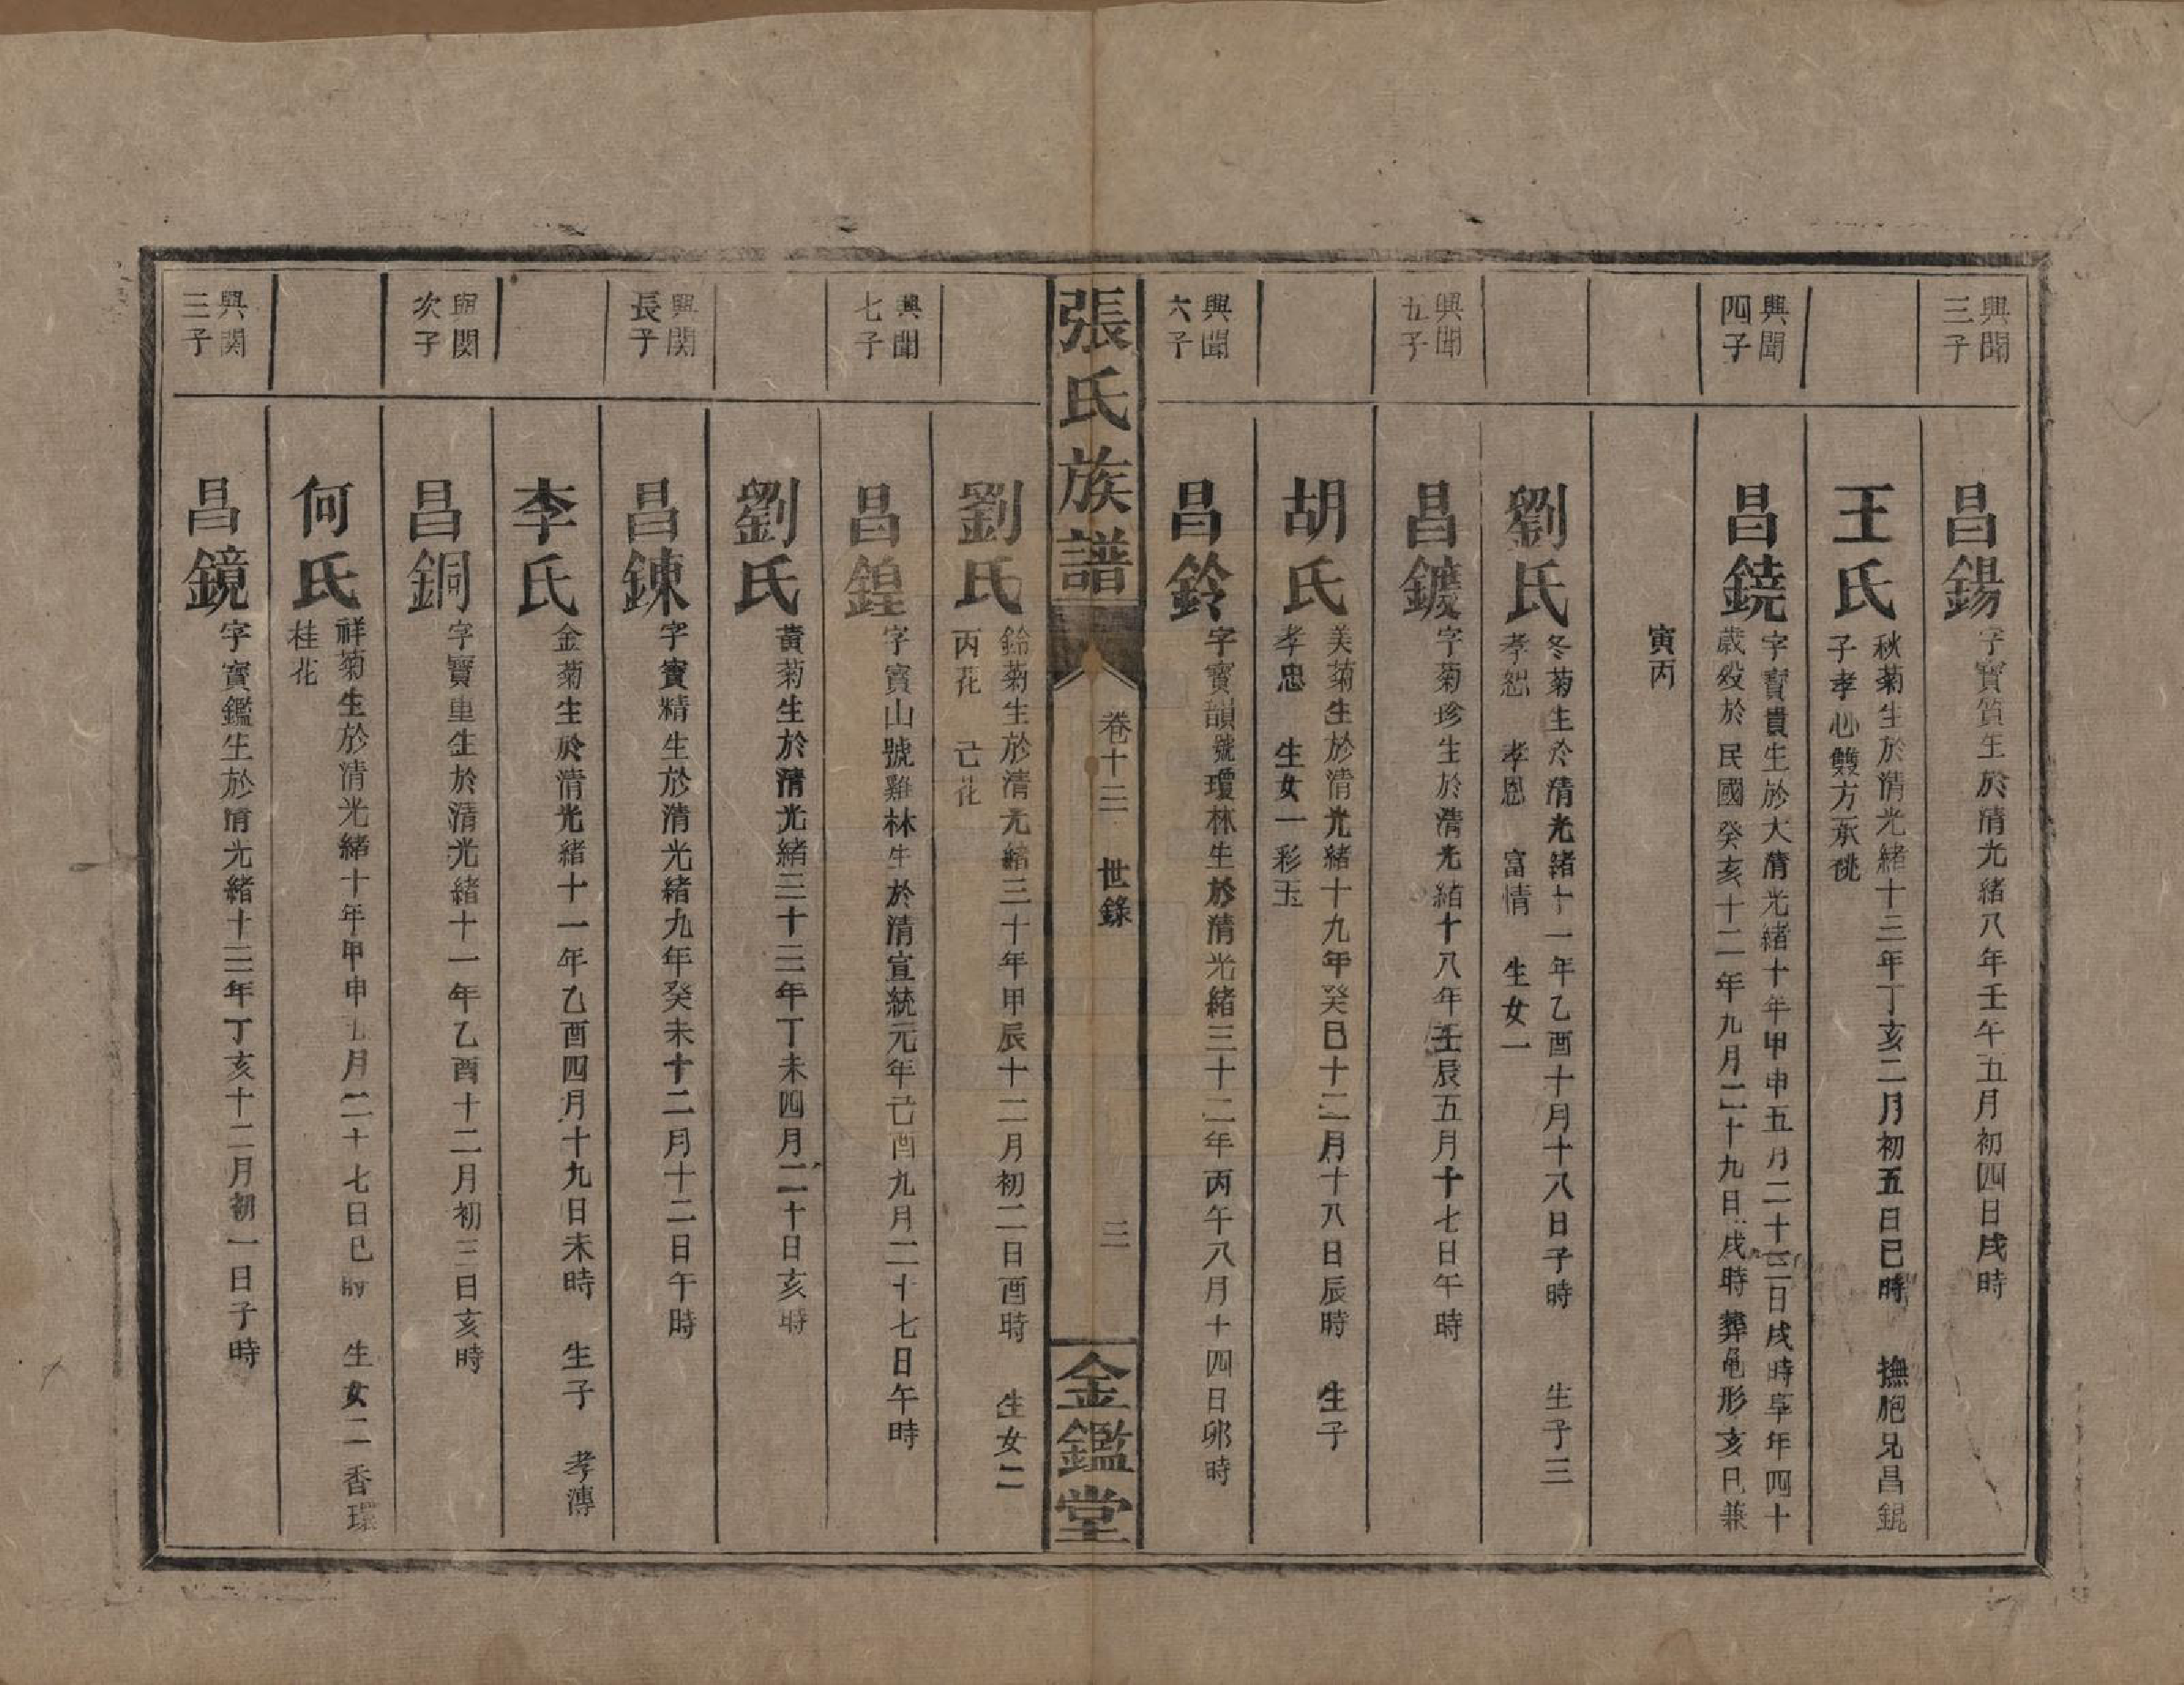 興聞三子
昌錫
字寶質生於清光緒八年壬午五月初四日戌時
王氏
秋菊生於清光緒十三年丁亥二月初五日巳時 撫胞兄昌錕
子孝心雙方承祧
興聞四子
昌鐃
字寶貴生於大清光緒十年甲申五月二十三日戌時享年四十
歲歿於民國癸亥十二年九月二十九日戌時葬黽形亥巳兼
寅丙
劉氏
冬菊生於清光緒十一年乙酉十月十八日子時 生子三
孝恕 孝恩 富情 生女一
興聞五子
昌鑣
字菊珍生於清光緒十八年壬辰五月十七日午時
胡氏
美菊生於清光緒十九年癸巳十二月十八日辰時 生子
孝忠 生女一彩玉
興聞六子
昌鈴
字寶韻號瓊林生於清光緒三十二年丙午八月十四日卯時
張氏族譜 卷十三 世錄 三 金鑑堂
劉氏
鈴菊生於清光緒三十年甲辰十二月初二日酉時 生女二
丙花 己花
興聞七子
昌鍠
字寶山號雞林生於清宣統元年己酉九月二十七日午時
劉氏
黃菊生於清光緒三十三年丁未四月二十日亥時
興関長子
昌鍊
字寶精生於清光緒九年癸未十二月十二日午時
李氏
金菊生於清光緒十一年乙酉四月十九日未時 生子 孝溥
興関次子
昌銅
字寶重生於清光緒十一年乙酉十二月初三日亥時
何氏
祥菊生於清光緒十年甲申七月二十七日巳時 生女二香環
桂花
興関三子
昌鏡
字寶鑑生於清光緒十三年丁亥十二月初一日子時